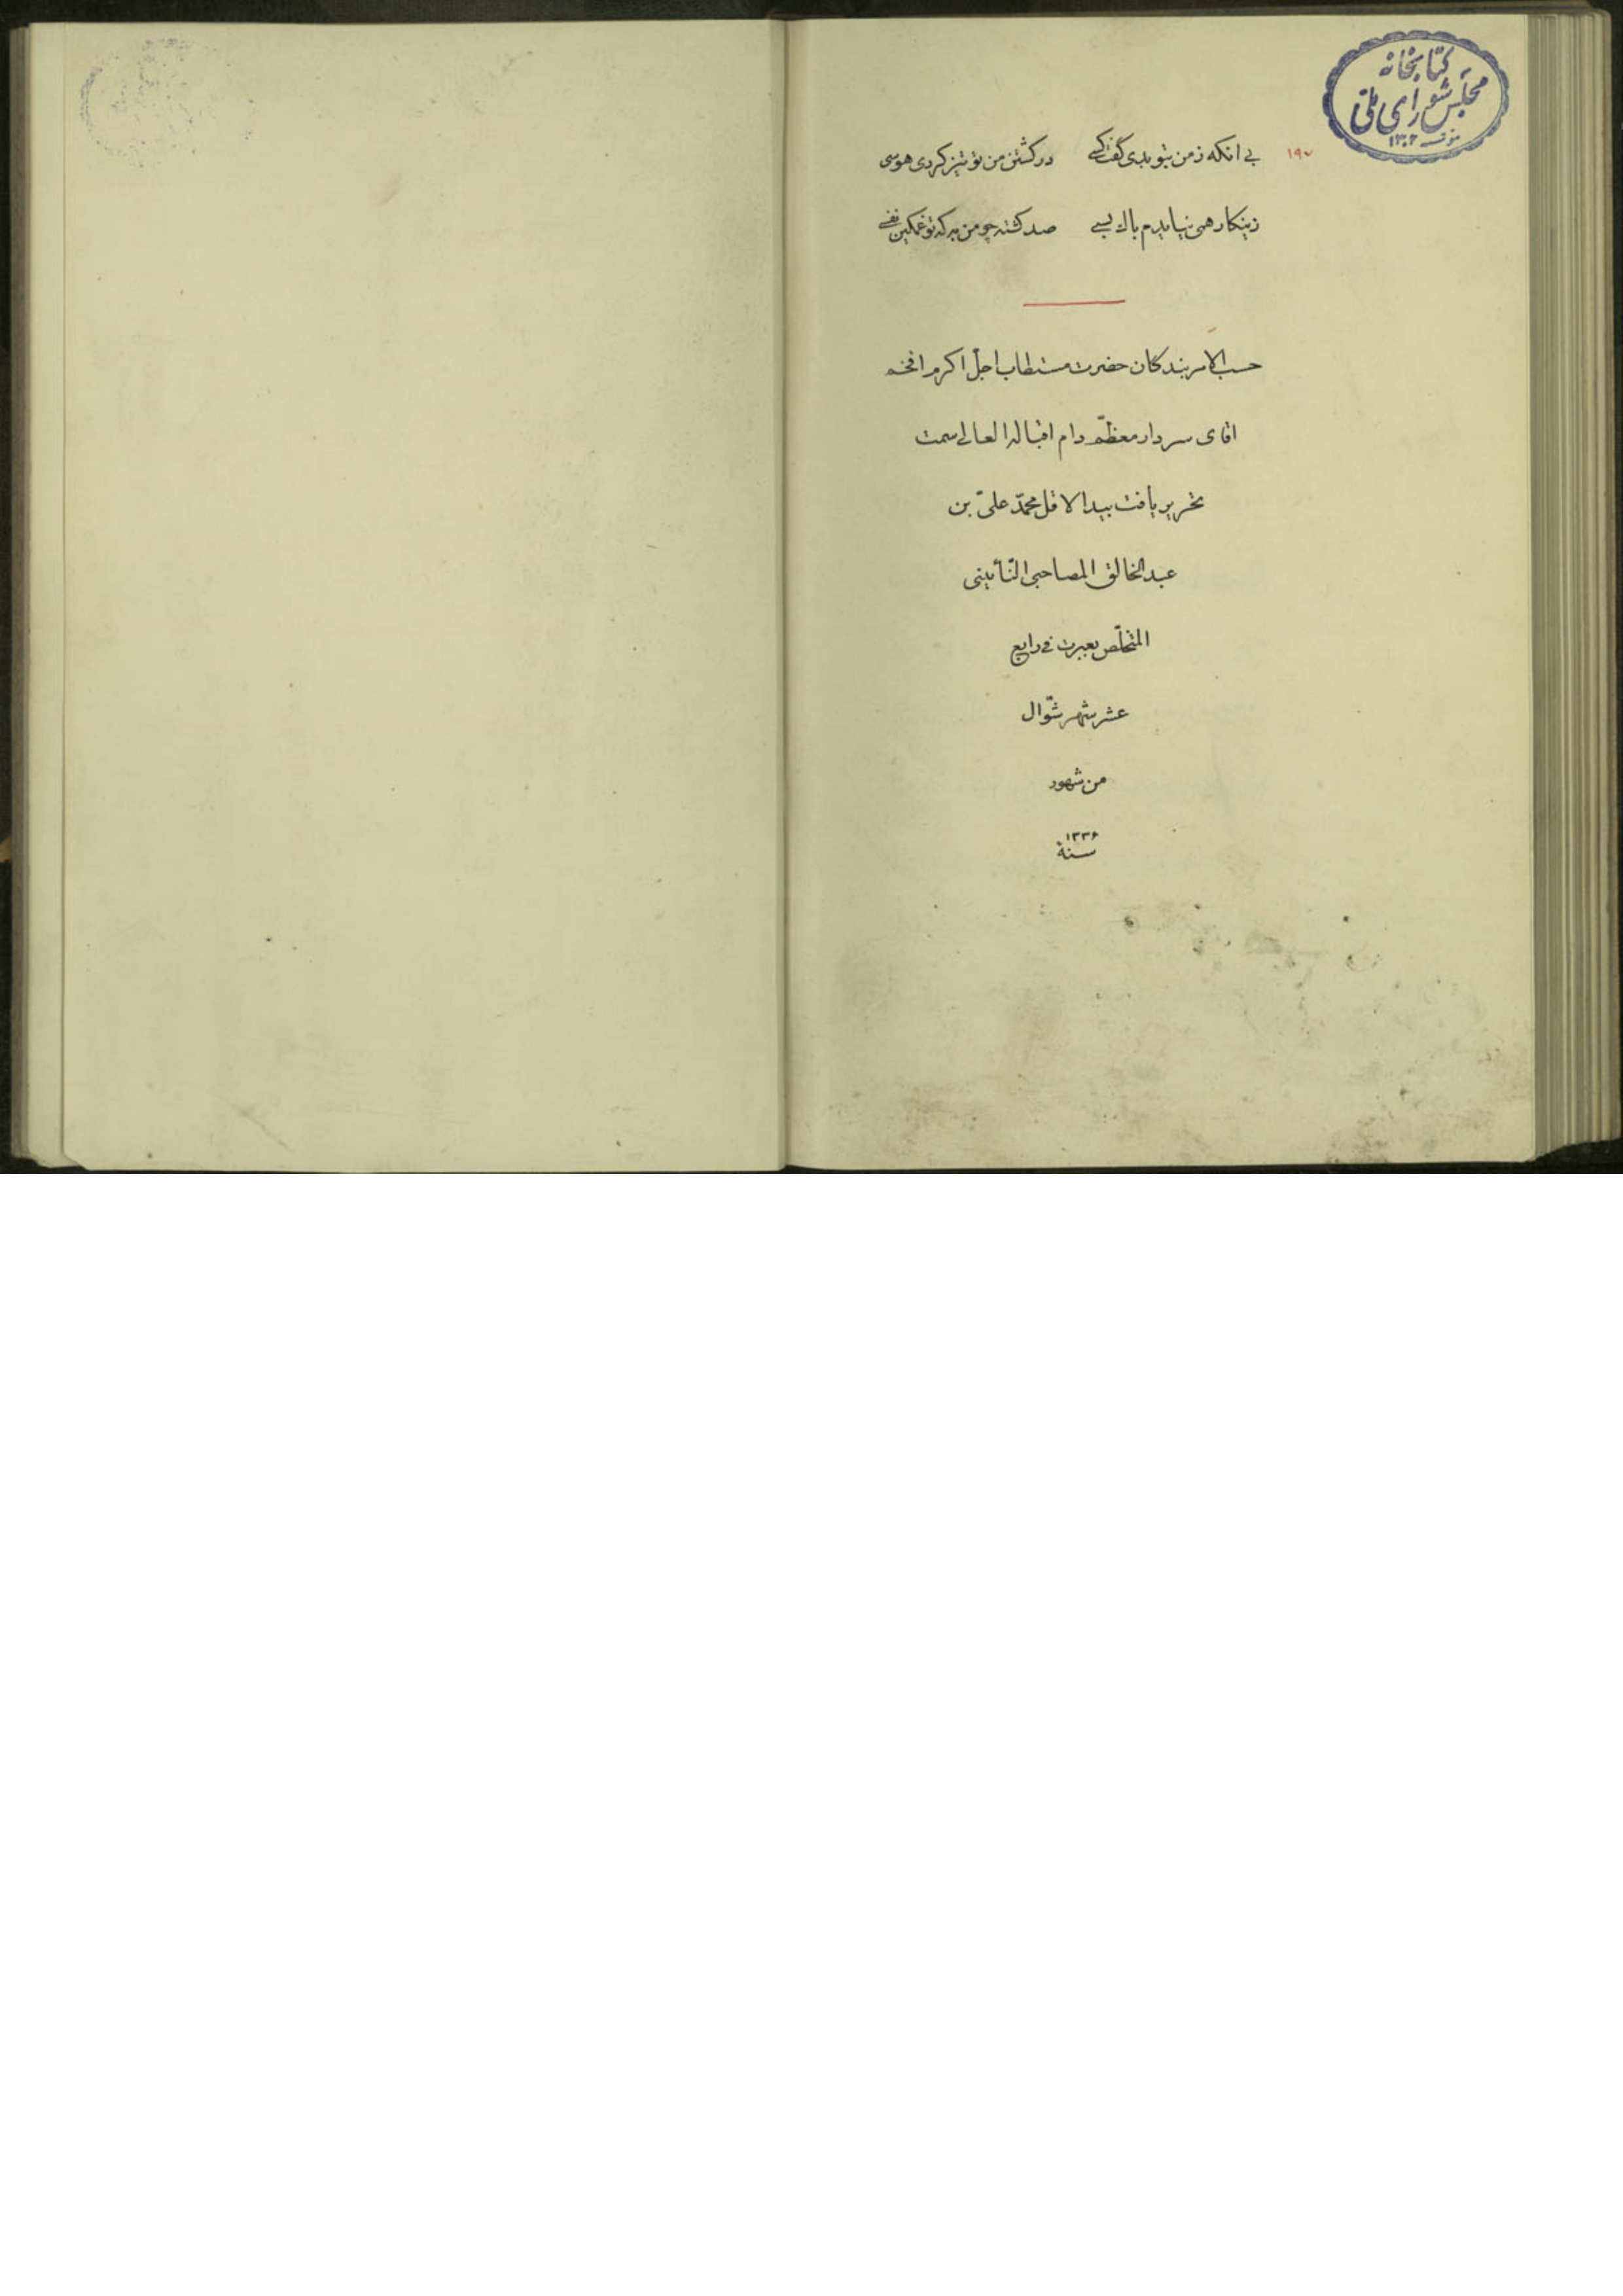 کتابخانه
مجلس شورای ملی
۱۳۰۲
۱۹۷
بی انکه ز من بتو بدی گفت کسی در کشتن من تو تیز کردی هوسی
زینکار همی نیایدم باك بسی صد کشته چو من به که تو غمکین نفسی
حسب الامر بندکان حضرت مستطاب اجلّ اکرم افخم
اقای سردار معظّم دام اقباله العالی سمت
تحریر یافت بید الاقل محمّد علیّ بن
عبدالخالق المصاحبی النّائینی
المتخلّص بعبرت فی رابع
عشر شهر شوّال
من شهور
۱۳۳۶
سنة